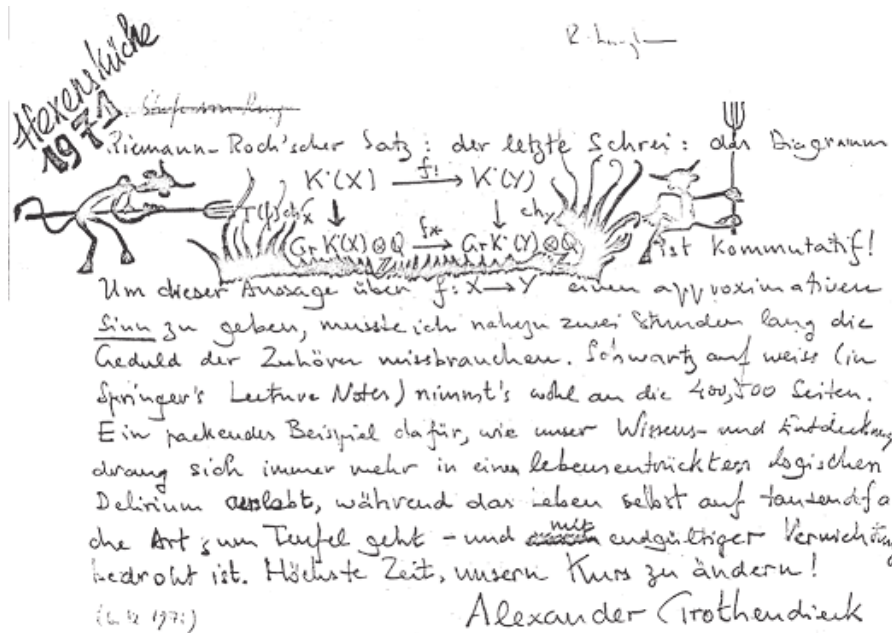 Hexenküche
1971
Riemann-Roch'scher Satz: der letzte Schrei: das Diagramm
K˙(X) f! K˙(Y)
T(f)chX f* chY
Gr K˙(X)⊗Q Gr K˙(Y)⊗Q
ist kommutatif!
Um dieser Aussage über f: X → Y einen approximativen
Sinn zu geben, musste ich nahezu zwei Stunden lang die
Geduld der Zuhörer missbrauchen. Schwartz auf weiss (in
Springer's Lecture Notes) nimmt's wohl an die 400, 500 Seiten.
Ein packendes Beispiel dafür, wie unser Wissens- und Entdeckungs
drang sich immer mehr in einem lebensentrückten logischen
Delirium auslebt, während das Leben selbst auf tausendfa
che Art zum Teufel geht - und mit endgültiger Vernichtung
bedroht ist. Höchste Zeit, unsern Kurs zu ändern!
Alexander Grothendieck